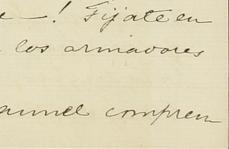 ! Fíjate en
los armadores
aunnel compren